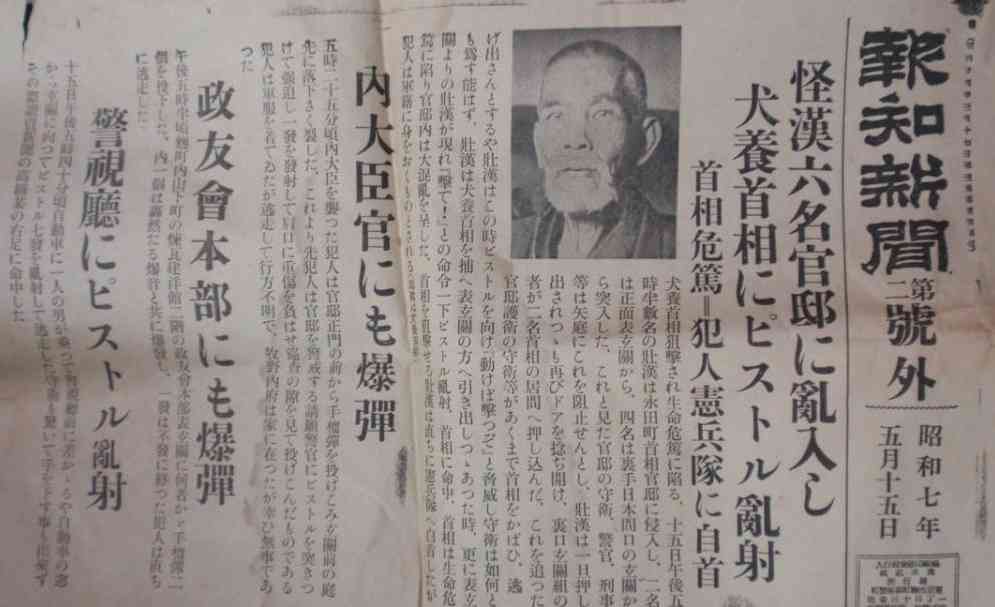 報知新聞
第二號外
昭和七年
五月十五日
怪漢六名官邸に亂入し
犬養首相にピストル亂射
首相危篤＝犯人憲兵隊に自首
犬養首相狙擊され生命危篤に陷る、十五日午後五
時半數名の壯漢は永田町首相官邸に侵入し、二名
は正面表玄關から、四名は裏手日本間口の玄關か
ら突入した、これと見た官邸の守衛、警官、刑事
等は矢庭にこれを阻止せんとし、壯漢は一旦押し
出されつゝも再びドアを捻ぢ開け、裏口玄關組の
者が二名首相の居間へ押し込んだ、これを追つた
官邸護衛の守衛等があくまで首相をかばひ、逃
げ出さんとするや壯漢はこの時ピストルを向け『動けば擊つぞ』と脅威し守衛は如何と
も爲す能はず、壯漢は犬養首相を捕へ表玄關の方へ引き出しつゝあつた時、更に表玄
關よりの壯漢が現れ『擊て！』との命令一下ピストル亂射、首相に命中、首相は生命危
篤に陷り官邸內は大混亂を呈した、首相を狙擊せる壯漢は直ちに憲兵隊へ自首したが
犯人は軍籍に身をおくものとされる
內大臣官にも爆彈
五時二十五分頃內大臣を襲つた犯人は官邸正門の前から手榴彈を投げこみ玄關前の庭
先に落下さく裂した、これより先犯人は官邸を警戒する請願警官にピストルを突きつ
けて強迫し一發を發射して肩口に重傷を負はせ警官の隙を見て投げこんだものである
犯人は軍服を着てゐたが逃走して行方不明で、牧野內府は家に在つたが幸ひ無事であ
つた
政友會本部にも爆彈
午後五時半頃麴町內山下町の煉瓦建洋館二階の政友會本部表玄關に何者かゞ手榴彈二
個を投下した、內一個は轟然たる爆音と共に爆發し、一發は不發に終つた犯人は直ち
に逃走した
警視廳にピストル亂射
十五日午後五時四十分頃自動車に一人の男が乘つて警視廳前に差かゝるや自動車の窓
から玄關に向つてピストル七發を亂射して逃走した
の右足に命中した